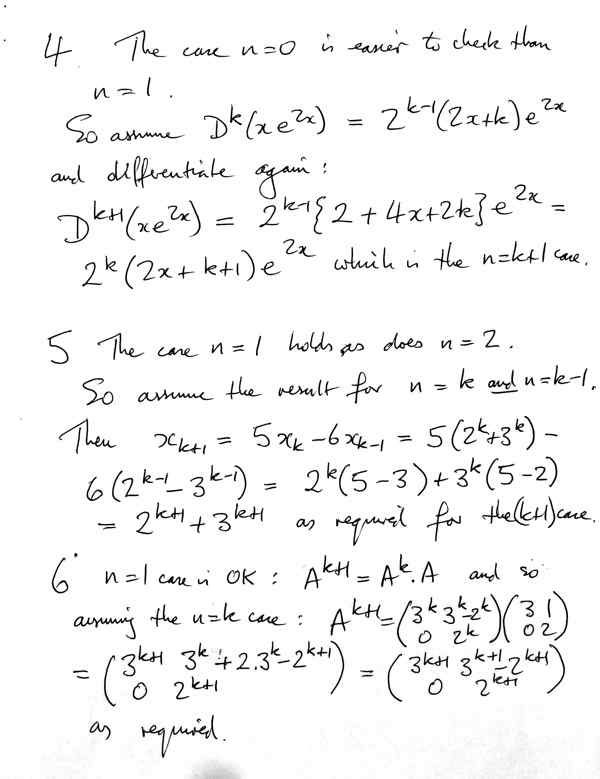 4 The case n=0 is easier to check than
n=1.
So assume D^k(xe^{2x}) = 2^{k-1}(2x+k)e^{2x}
and differentiate again:
D^{k+1}(xe^{2x}) = 2^{k-1}{2+4x+2k}e^{2x} =
2^k(2x+k+1)e^{2x} which is the n=k+1 case.
5 The case n=1 holds as does n=2.
So assume the result for n=k and n=k-1.
Then x_{k+1} = 5x_k-6x_{k-1} = 5(2^k+3^k)-
6(2^{k-1}-3^{k-1}) = 2^k(5-3)+3^k(5-2)
= 2^{k+1}+3^{k+1} as required for the (k+1) case.
6 n=1 case is OK: A^{k+1}=A^k.A and so
assuming the n=k case: A^{k+1}=(3^k 3^k-2^k; 0 2^k)(3 1; 0 2)
=(3^{k+1} 3^k+2.3^k-2^{k+1}; 0 2^{k+1}) = (3^{k+1} 3^{k+1}-2^{k+1}; 0 2^{k+1})
as required.